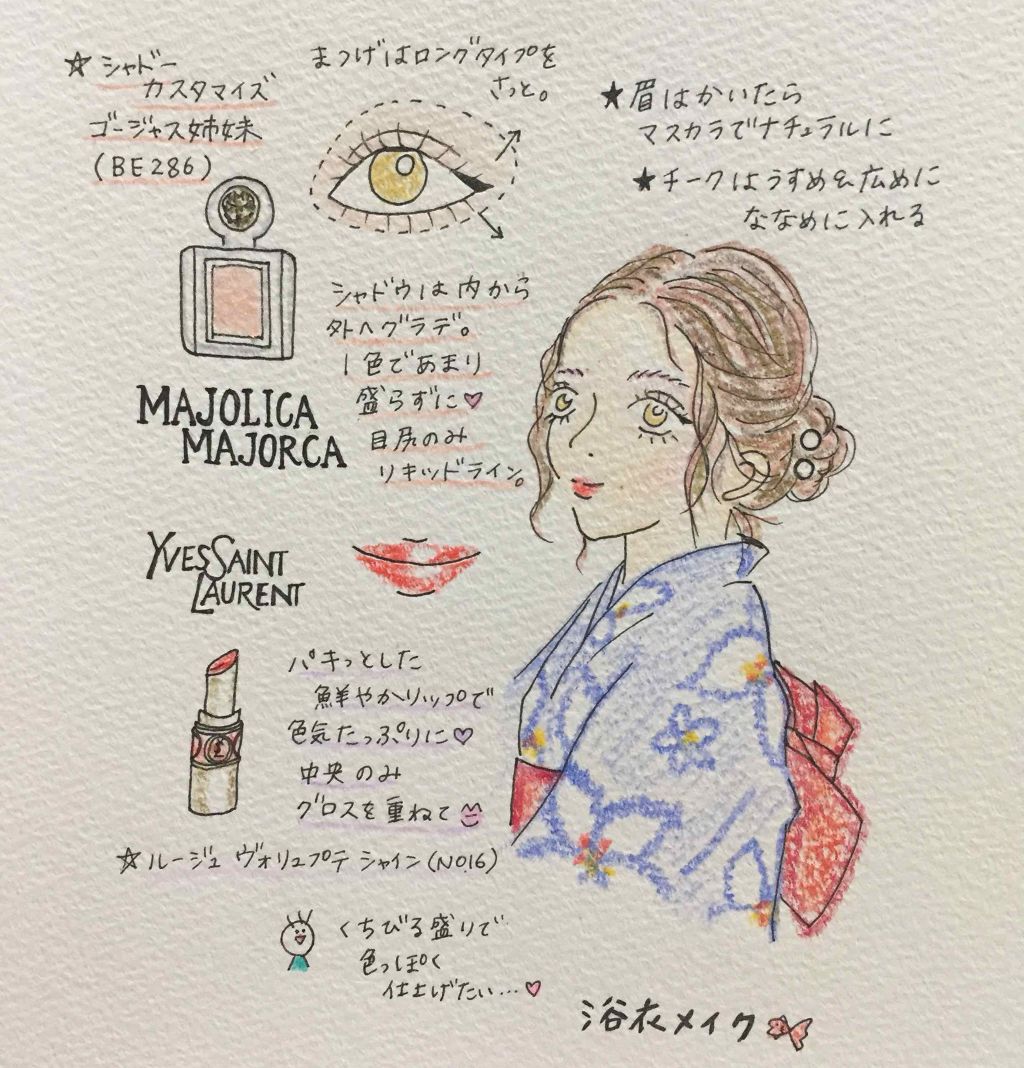 ☆シャドー
カスタマイズ
ゴージャス姉妹
(BE286)
まつげはロングタイプを
さっと。
★眉はかいたら
マスカラでナチュラルに
★チークはうすめ&広めに
ななめに入れる
シャドウは内から
外へグラデ。
1色であまり
盛らずに♡
目尻のみ
リキッドライン。
MAJOLICA
MAJORCA
YVESSAINT
LAURENT
パキっとした
鮮やかリップで
色気たっぷりに♡
中央のみ
グロスを重ねて
☆ルージュ ヴォリュプテ シャイン(NO.16)
くちびる盛りで
色っぽく
仕上げたい…♡
浴衣メイク